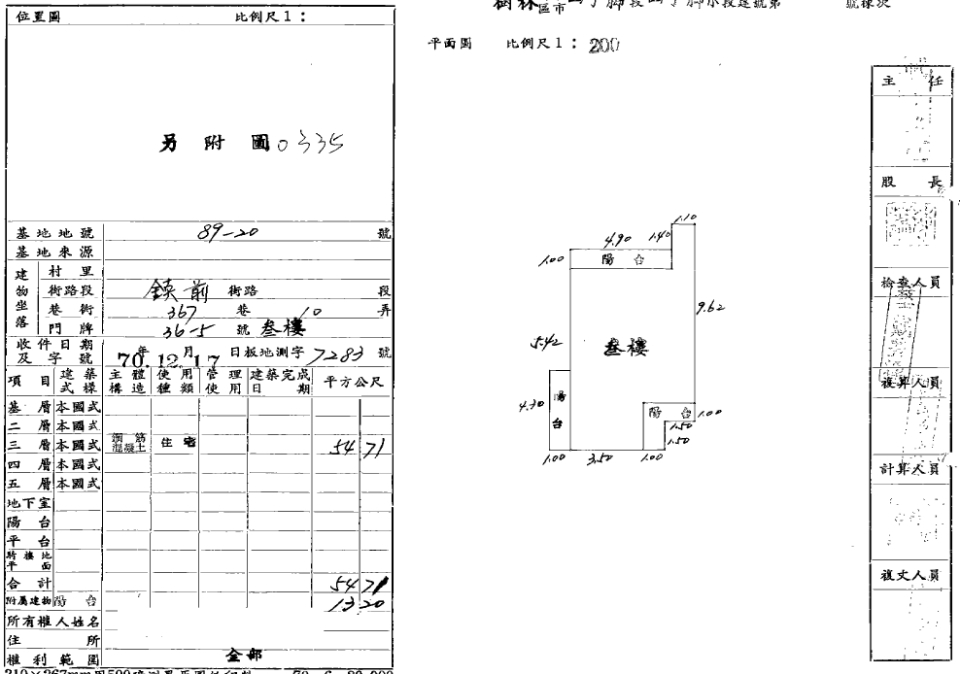 位置圖 比例尺1：
另附圖0335
基地地號 89-20 號
基地來源
建物坐落 村里
街路段 鎮前 街路 段
巷衖 367 巷 10 弄
門牌 36-5 號 叁樓
收件日期及字號 70年12月17日板地測字7283號
項目 建築式樣 主體構造 使用種類 管理使用 建築完成日期 平方公尺
基層 本國式
二層 本國式
三層 本國式 鋼筋混凝土 住宅 54 71
四層 本國式
五層 本國式
地下室
陽台
平台
騎樓地平面
合計 54 71
附屬建物 陽台 13 20
所有權人姓名
住所
權利範圍 全部
樹林區市 段 小段建號第 號棟次
平面圖 比例尺1：200
1.10
4.90 1.40
1.00 陽台
9.62
5.42 叁樓
4.30 陽台
陽台 1.00
1.50
1.50
1.00 3.50 1.00
主任
股長
檢查人員
複算人員
計算人員
複丈人員